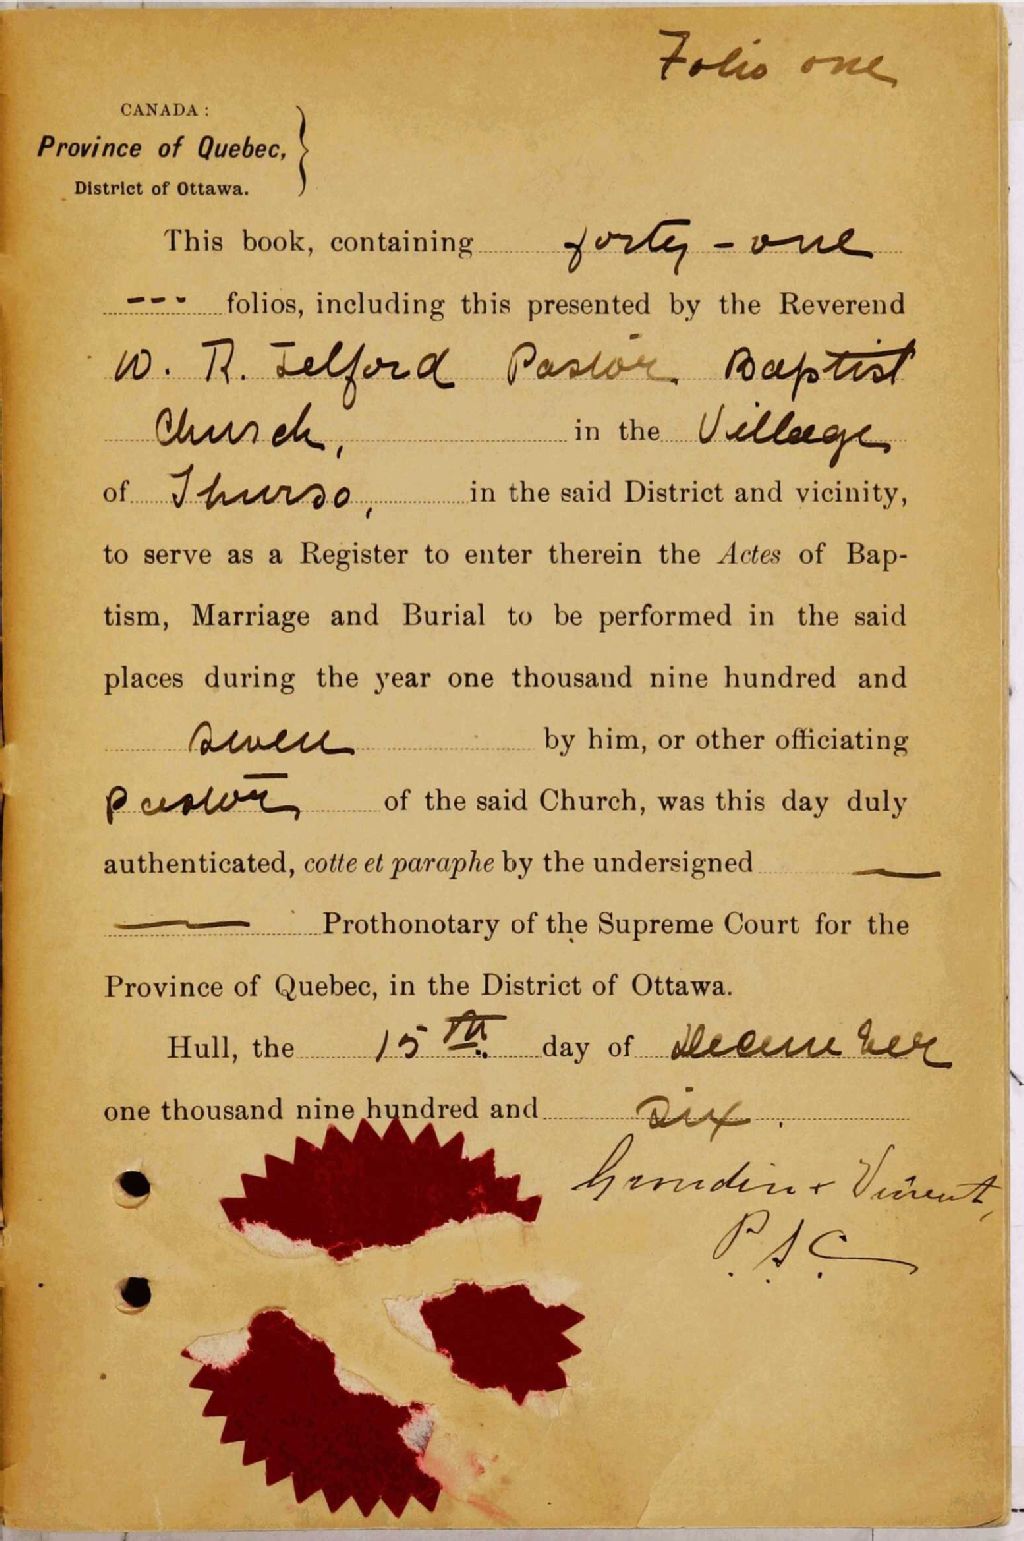 Folio one
CANADA:
Province of Quebec,
District of Ottawa.
This book, containing forty-one
--- folios, including this presented by the Reverend
W. R. Telford Pastor Baptist
Church, in the Village
of Thurso, in the said District and vicinity,
to serve as a Register to enter therein the Actes of Bap-
tism, Marriage and Burial to be performed in the said
places during the year one thousand nine hundred and
seven by him, or other officiating
pastor of the said Church, was this day duly
authenticated, cotte et paraphe by the undersigned
Prothonotary of the Supreme Court for the
Province of Quebec, in the District of Ottawa.
Hull, the 15th day of December
one thousand nine hundred and six.
Grondin & Vincent,
P.S.C.